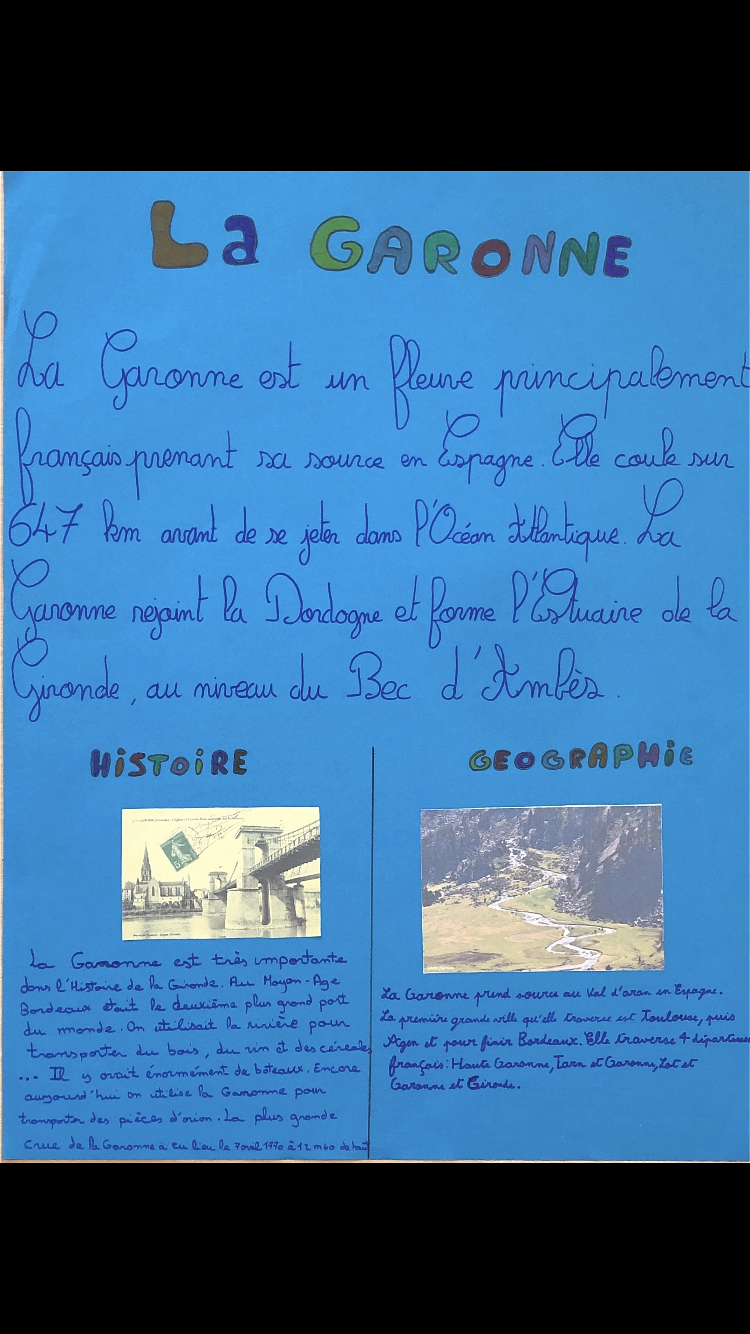 La GARONNE
La Garonne est un fleuve principalement
français prenant sa source en Espagne. Elle coule sur
647 km avant de se jeter dans l'Océan Atlantique. La
Garonne rejoint la Dordogne et forme l'Estuaire de la
Gironde, au niveau du Bec d'Ambès.
HiSTOiRE
La Garonne est très importante
dans l'Histoire de la Gironde. Au Moyen-Age
Bordeaux était le deuxième plus grand port
du monde. On utilisait la rivière pour
transporter du bois, du vin et des céréales
... Il y avait énormément de bateaux. Encore
aujourd'hui on utilise la Garonne pour
transporter des pièces d'avion. La plus grande
Crue de la Garonne a eu lieu le 7 avril 1770 à 12 m 60 de haut
GEOGRAPHiE
La Garonne prend source au Val d'aran en Espagne.
La première grande ville qu'elle traverse est Toulouse, puis
Agen et pour finir Bordeaux. Elle traverse 4 départements
français: Haute Garonne, Tarn et Garonne, Lot et
Garonne et Gironde.